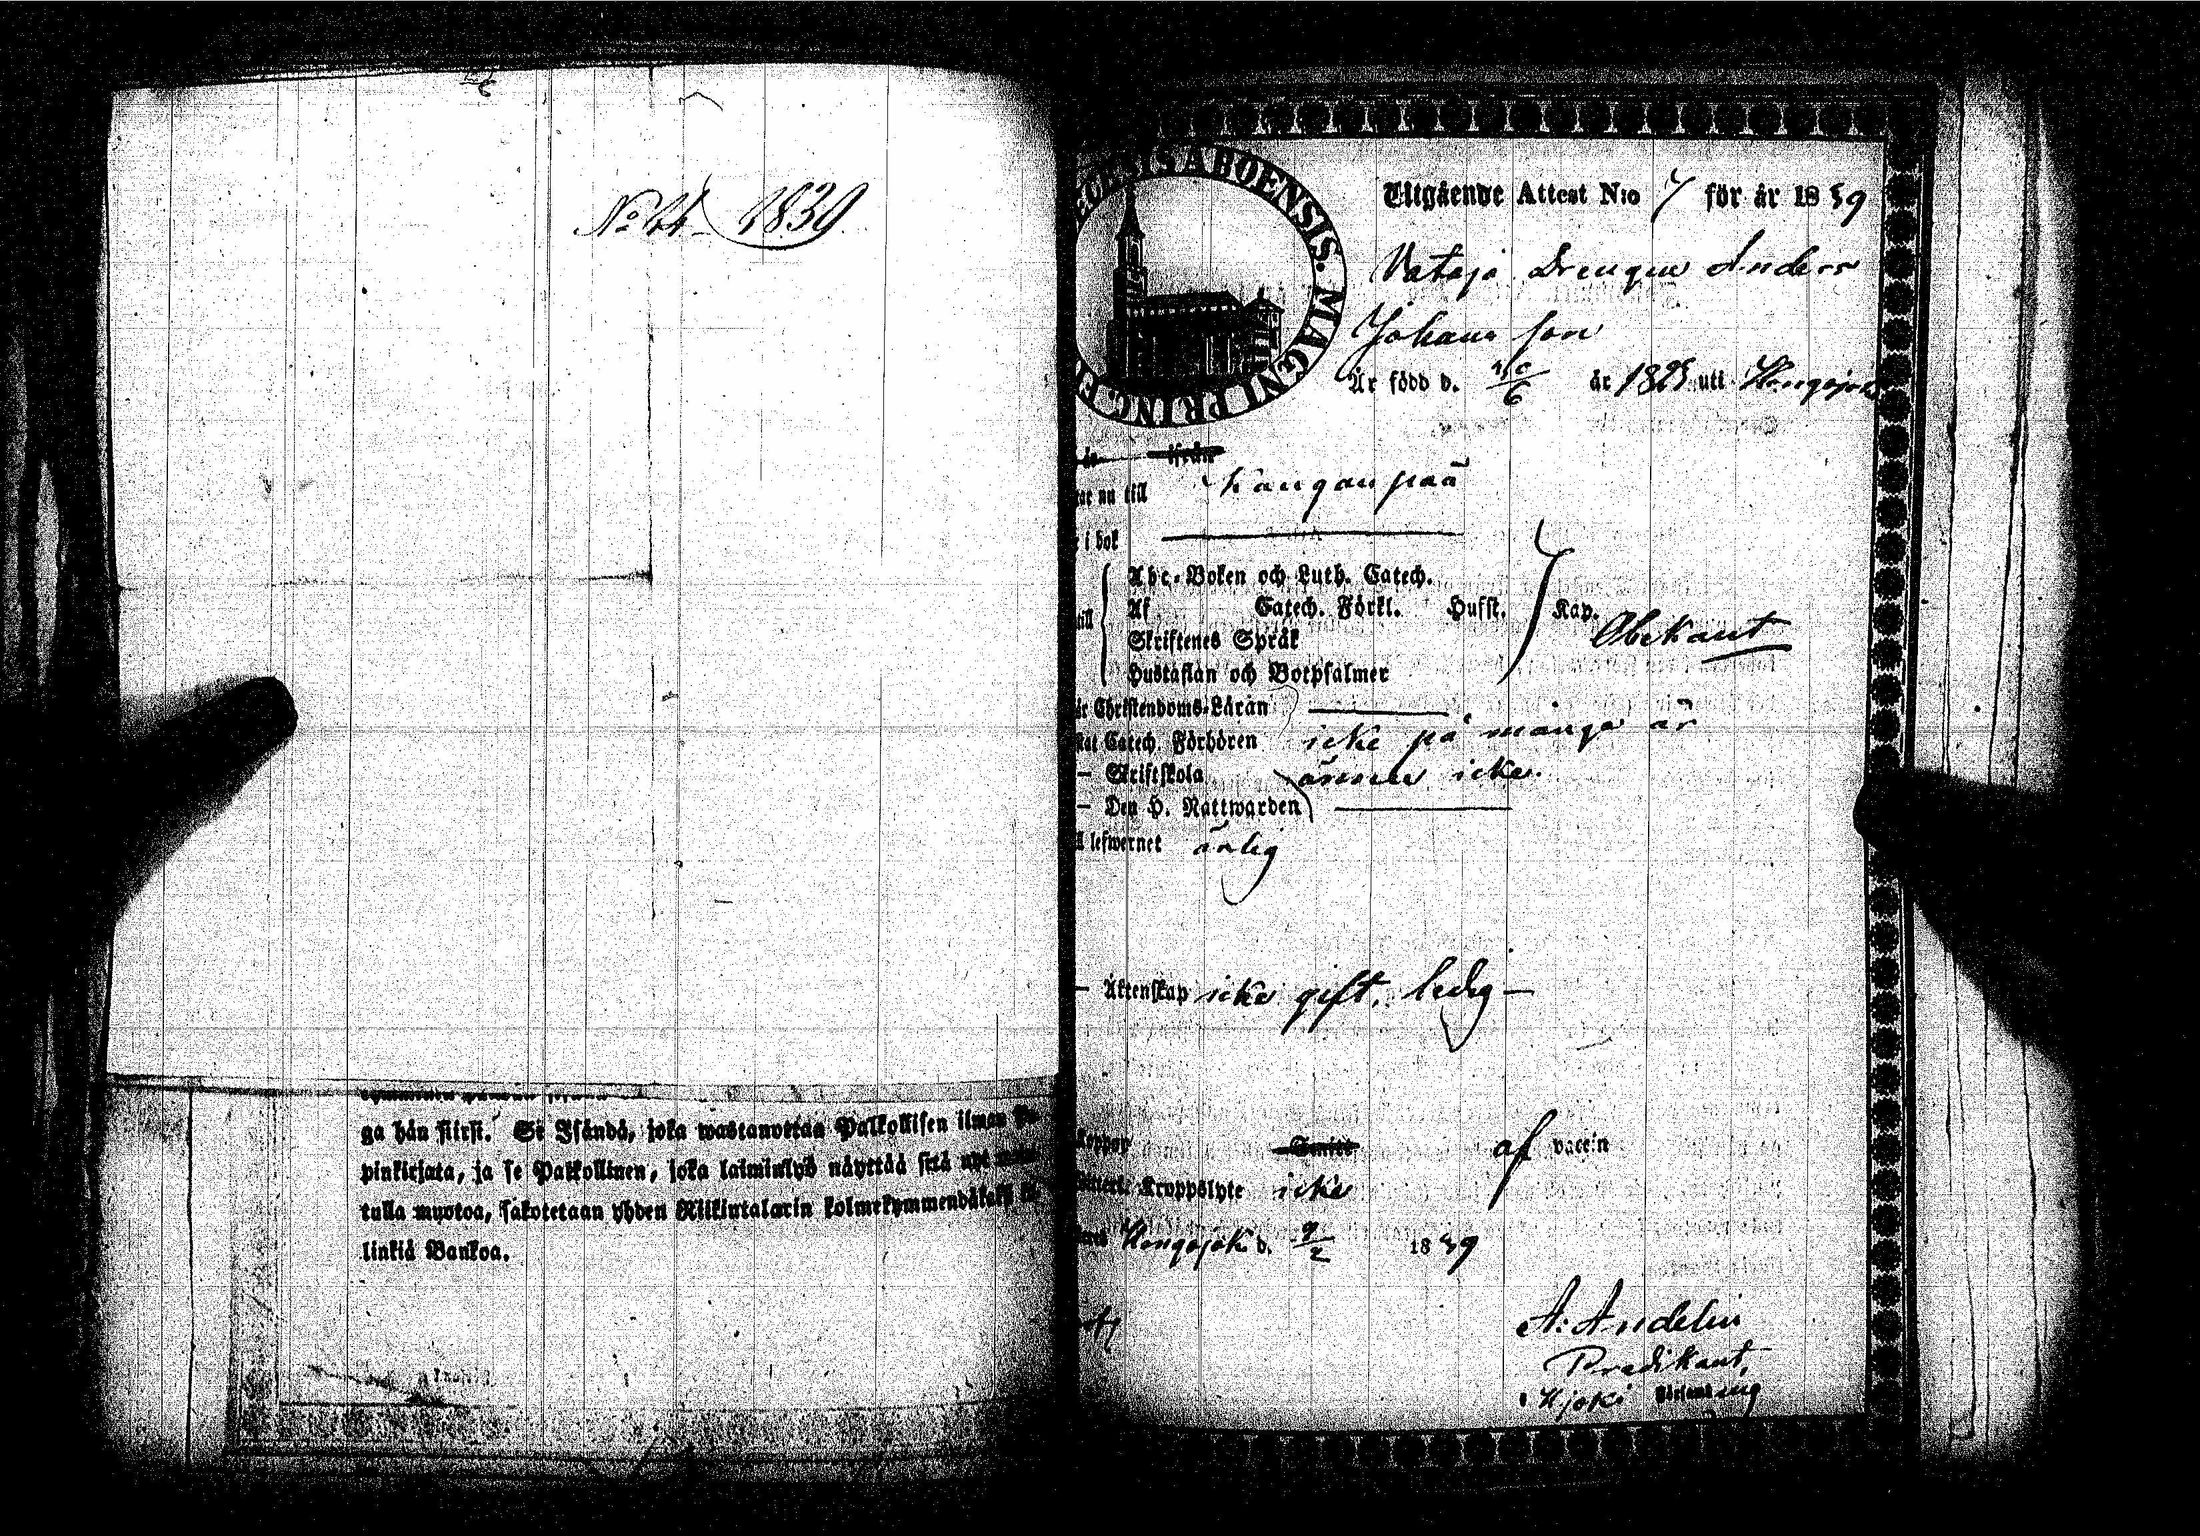 No 44. 1839.
ga hän siirsi. Se Isändä, joka wastanottaa Palkollisen ilman
pinkirjata, ja se Palkollinen, joka laiminlyö näyttää sitä
tulla muotoa, sakotetaan yhden Riikintalarin kolmekymmendäkaksi
linkiä Bankoa.
ABOENSIS. MAGNI PRINC
Utgående Attest N:o 7 för år 1839
Vataja Drengen Anders
Johans son
Är född d. /6 år 1825 uti Hongojoki
nu till Kanganpää
i bok
Abc-Boken och Luth. Catech.
Af Catech. Förkl. Husst. Kap.
Obekant
Skriftenes Språk
Hustaflan och Botpsalmer
Christendoms-Läran
Catech. Förhören icke på många år
– Skriftskola ännu icke.
– Den H. Nattwarden
lefwernet ärlig
– Äktenskap icke gift, ledig –
Koppor af vaccin
Kroppslyte icke
Hongojoki d. 9/2 1839
A: Andelin
Predikant,
Hjoki